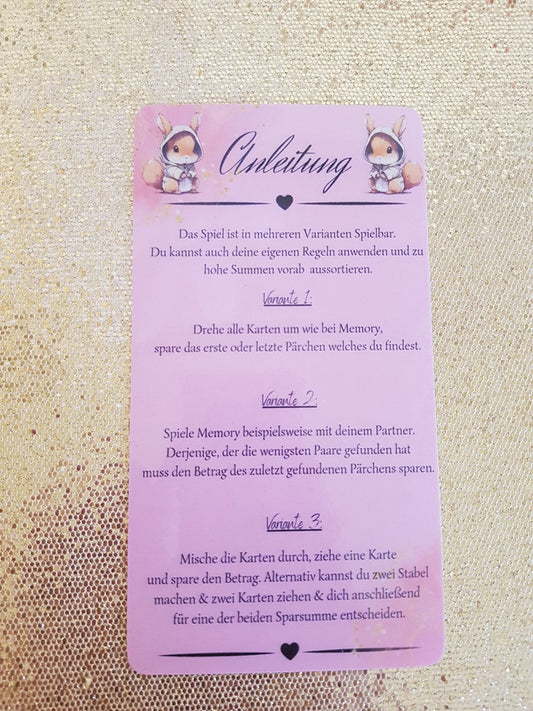 Anleitung
Das Spiel ist in mehreren Varianten Spielbar.
Du kannst auch deine eigenen Regeln anwenden und zu
hohe Summen vorab aussortieren.
Variante 1:
Drehe alle Karten um wie bei Memory,
spare das erste oder letzte Pärchen welches du findest.
Variante 2:
Spiele Memory beispielsweise mit deinem Partner.
Derjenige, der die wenigsten Paare gefunden hat
muss den Betrag des zuletzt gefundenen Pärchens sparen.
Variante 3:
Mische die Karten durch, ziehe eine Karte
und spare den Betrag. Alternativ kannst du zwei Stabel
machen & zwei Karten ziehen & dich anschließend
für eine der beiden Sparsumme entscheiden.